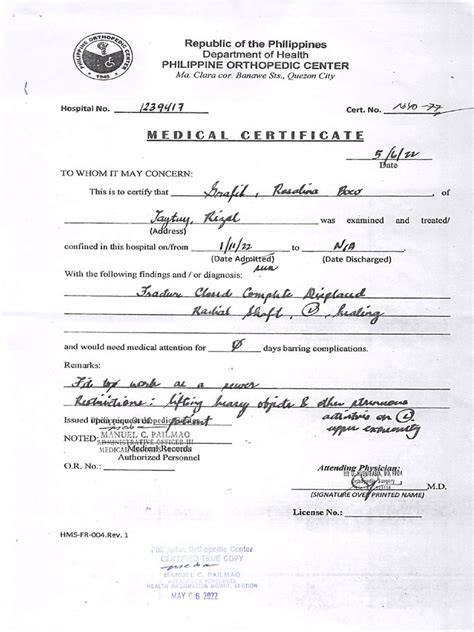 PHILIPPINE ORTHOPEDIC CENTER
1945
Republic of the Philippines
Department of Health
PHILIPPINE ORTHOPEDIC CENTER
Ma. Clara cor. Banawe Sts., Quezon City
Hospital No. 1239417 Cert. No.
MEDICAL CERTIFICATE
5/6/22
Date
TO WHOM IT MAY CONCERN:
This is to certify that Rosalina of
Taytay, Rizal was examined and treated/
(Address)
confined in this hospital on/from 1/11/22 to N/A
(Date Admitted) (Date Discharged)
With the following findings and / or diagnosis:
Fracture Closed Complete Displaced
Radial Shaft, (L), healing
and would need medical attention for 0 days barring complications.
Remarks:
Fit to work as a sewer
Restrictions: lifting heavy objects & other strenuous
activities on (L)
upper extremity
Issued upon request of patient
NOTED: MANUEL C. PAILMAO
ADMINISTRATIVE OFFICER III
Medical Records
Authorized Personnel
O.R. No.:
Attending Physician:
Orthopedic Surgery
M.D.
(SIGNATURE OVER PRINTED NAME)
License No.:
HMS-FR-004.Rev. 1
Philippine Orthopedic Center
CERTIFIED TRUE COPY
MANUEL C. PAILMAO
HEALTH INFORMATION MGMT. SECTION
MAY 06 2022